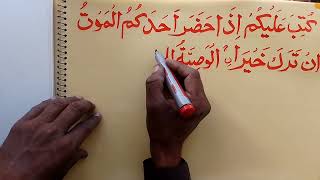 كُتِبَ عَلَيْكُمْ اِذَا حَضَرَ اَحَدَكُمُ الْمَوْتُ
اِنْ تَرَكَ خَيْرَا ۨ الْوَصِيَّةُ لِل